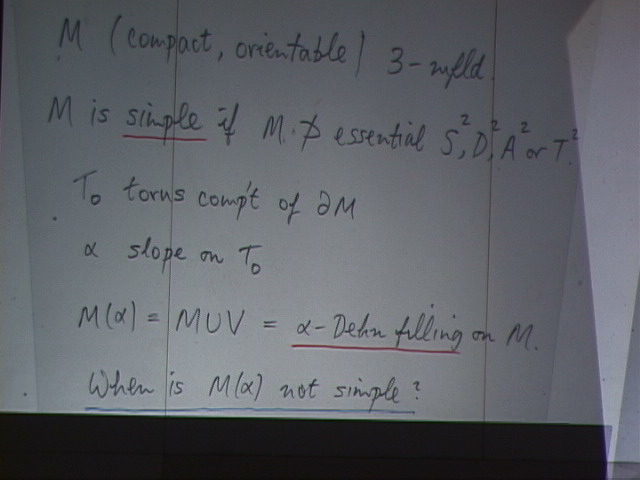 M (compact, orientable) 3-mfld.
M is simple if M ⊅ essential S², D², A² or T².
T₀ torus comp't of ∂M
α slope on T₀
M(α) = M∪V = α-Dehn filling on M.
When is M(α) not simple?